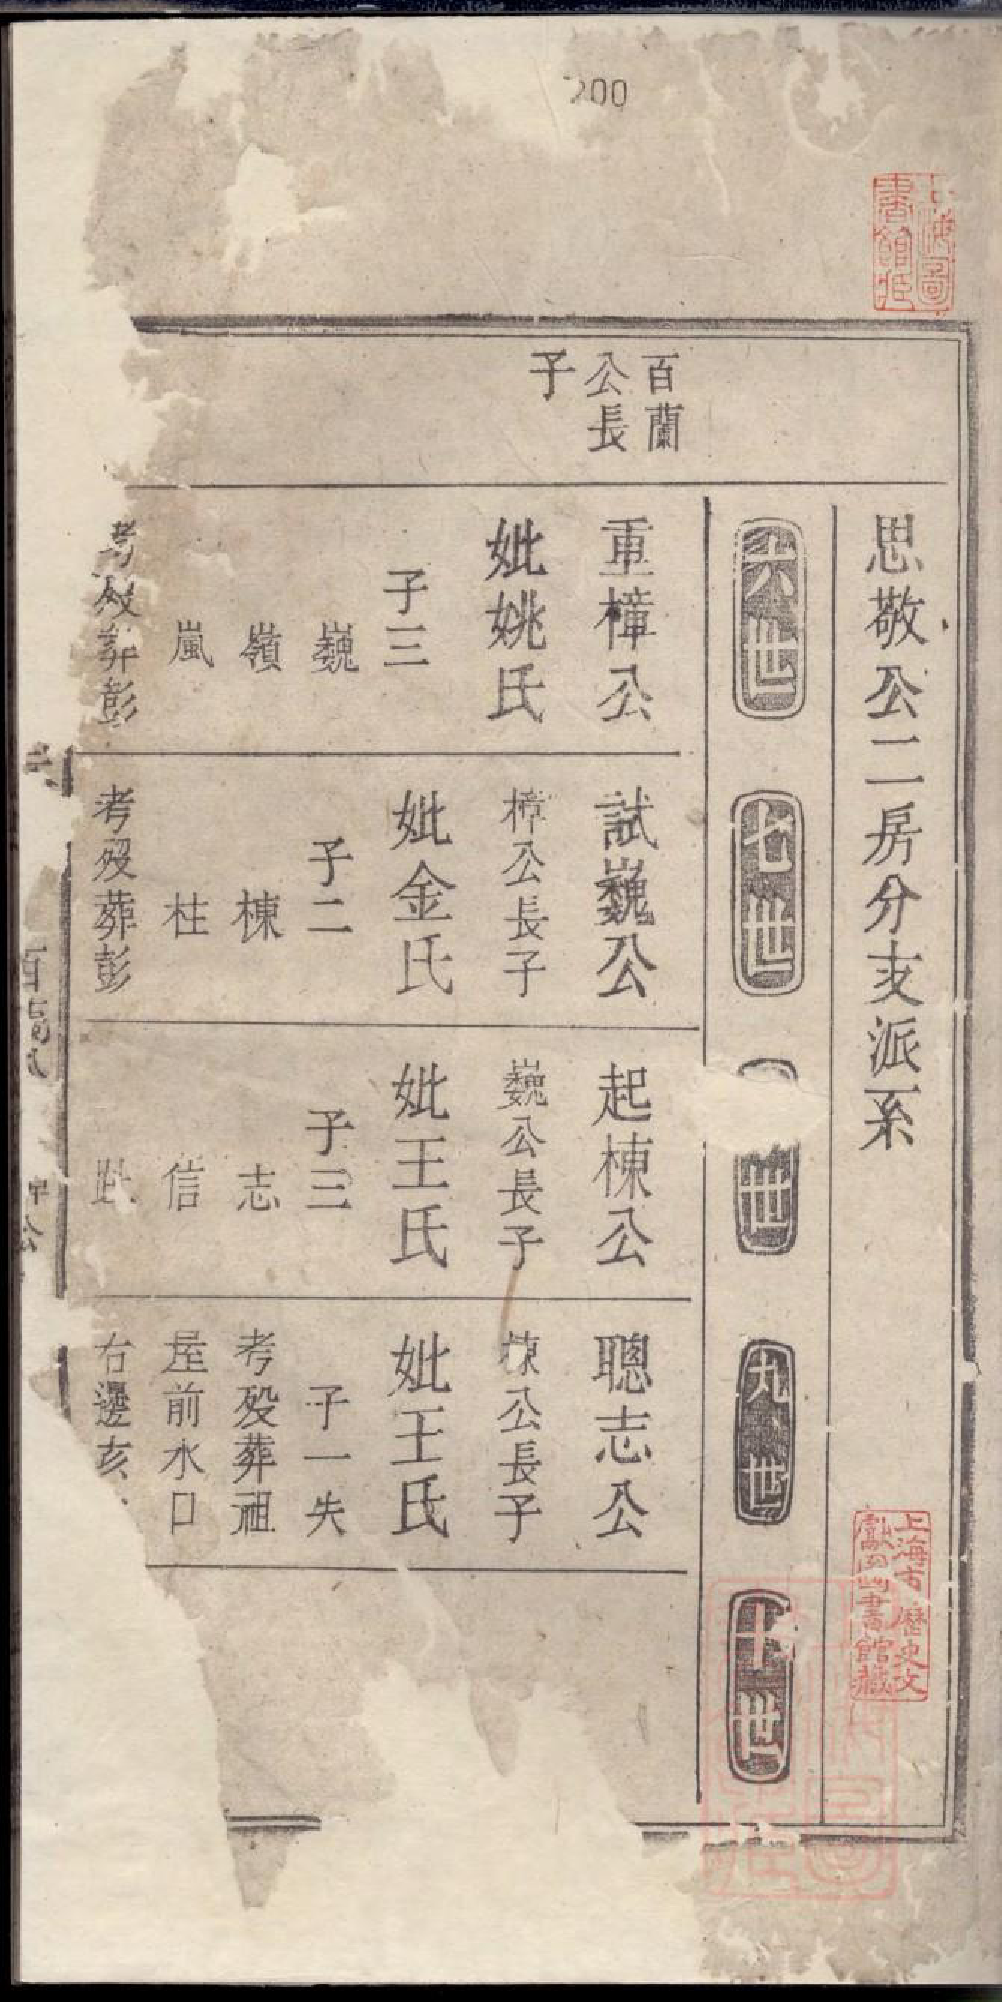 200
思敬公二房分支派系
六世
七世
世
九世
十世
百蘭
公長
子
重樟公
妣姚氏
子三
巍
嶺
嵐
考歿葬彭
試巍公
樟公長子
妣金氏
子二
棟
柱
考歿葬彭
起棟公
巍公長子
妣王氏
子三
志
信
聰志公
棟公長子
妣王氏
子一失
考歿葬祖
屋前水口
右邊亥
上海圖
書館藏
上海市歷史文
獻圖書館藏